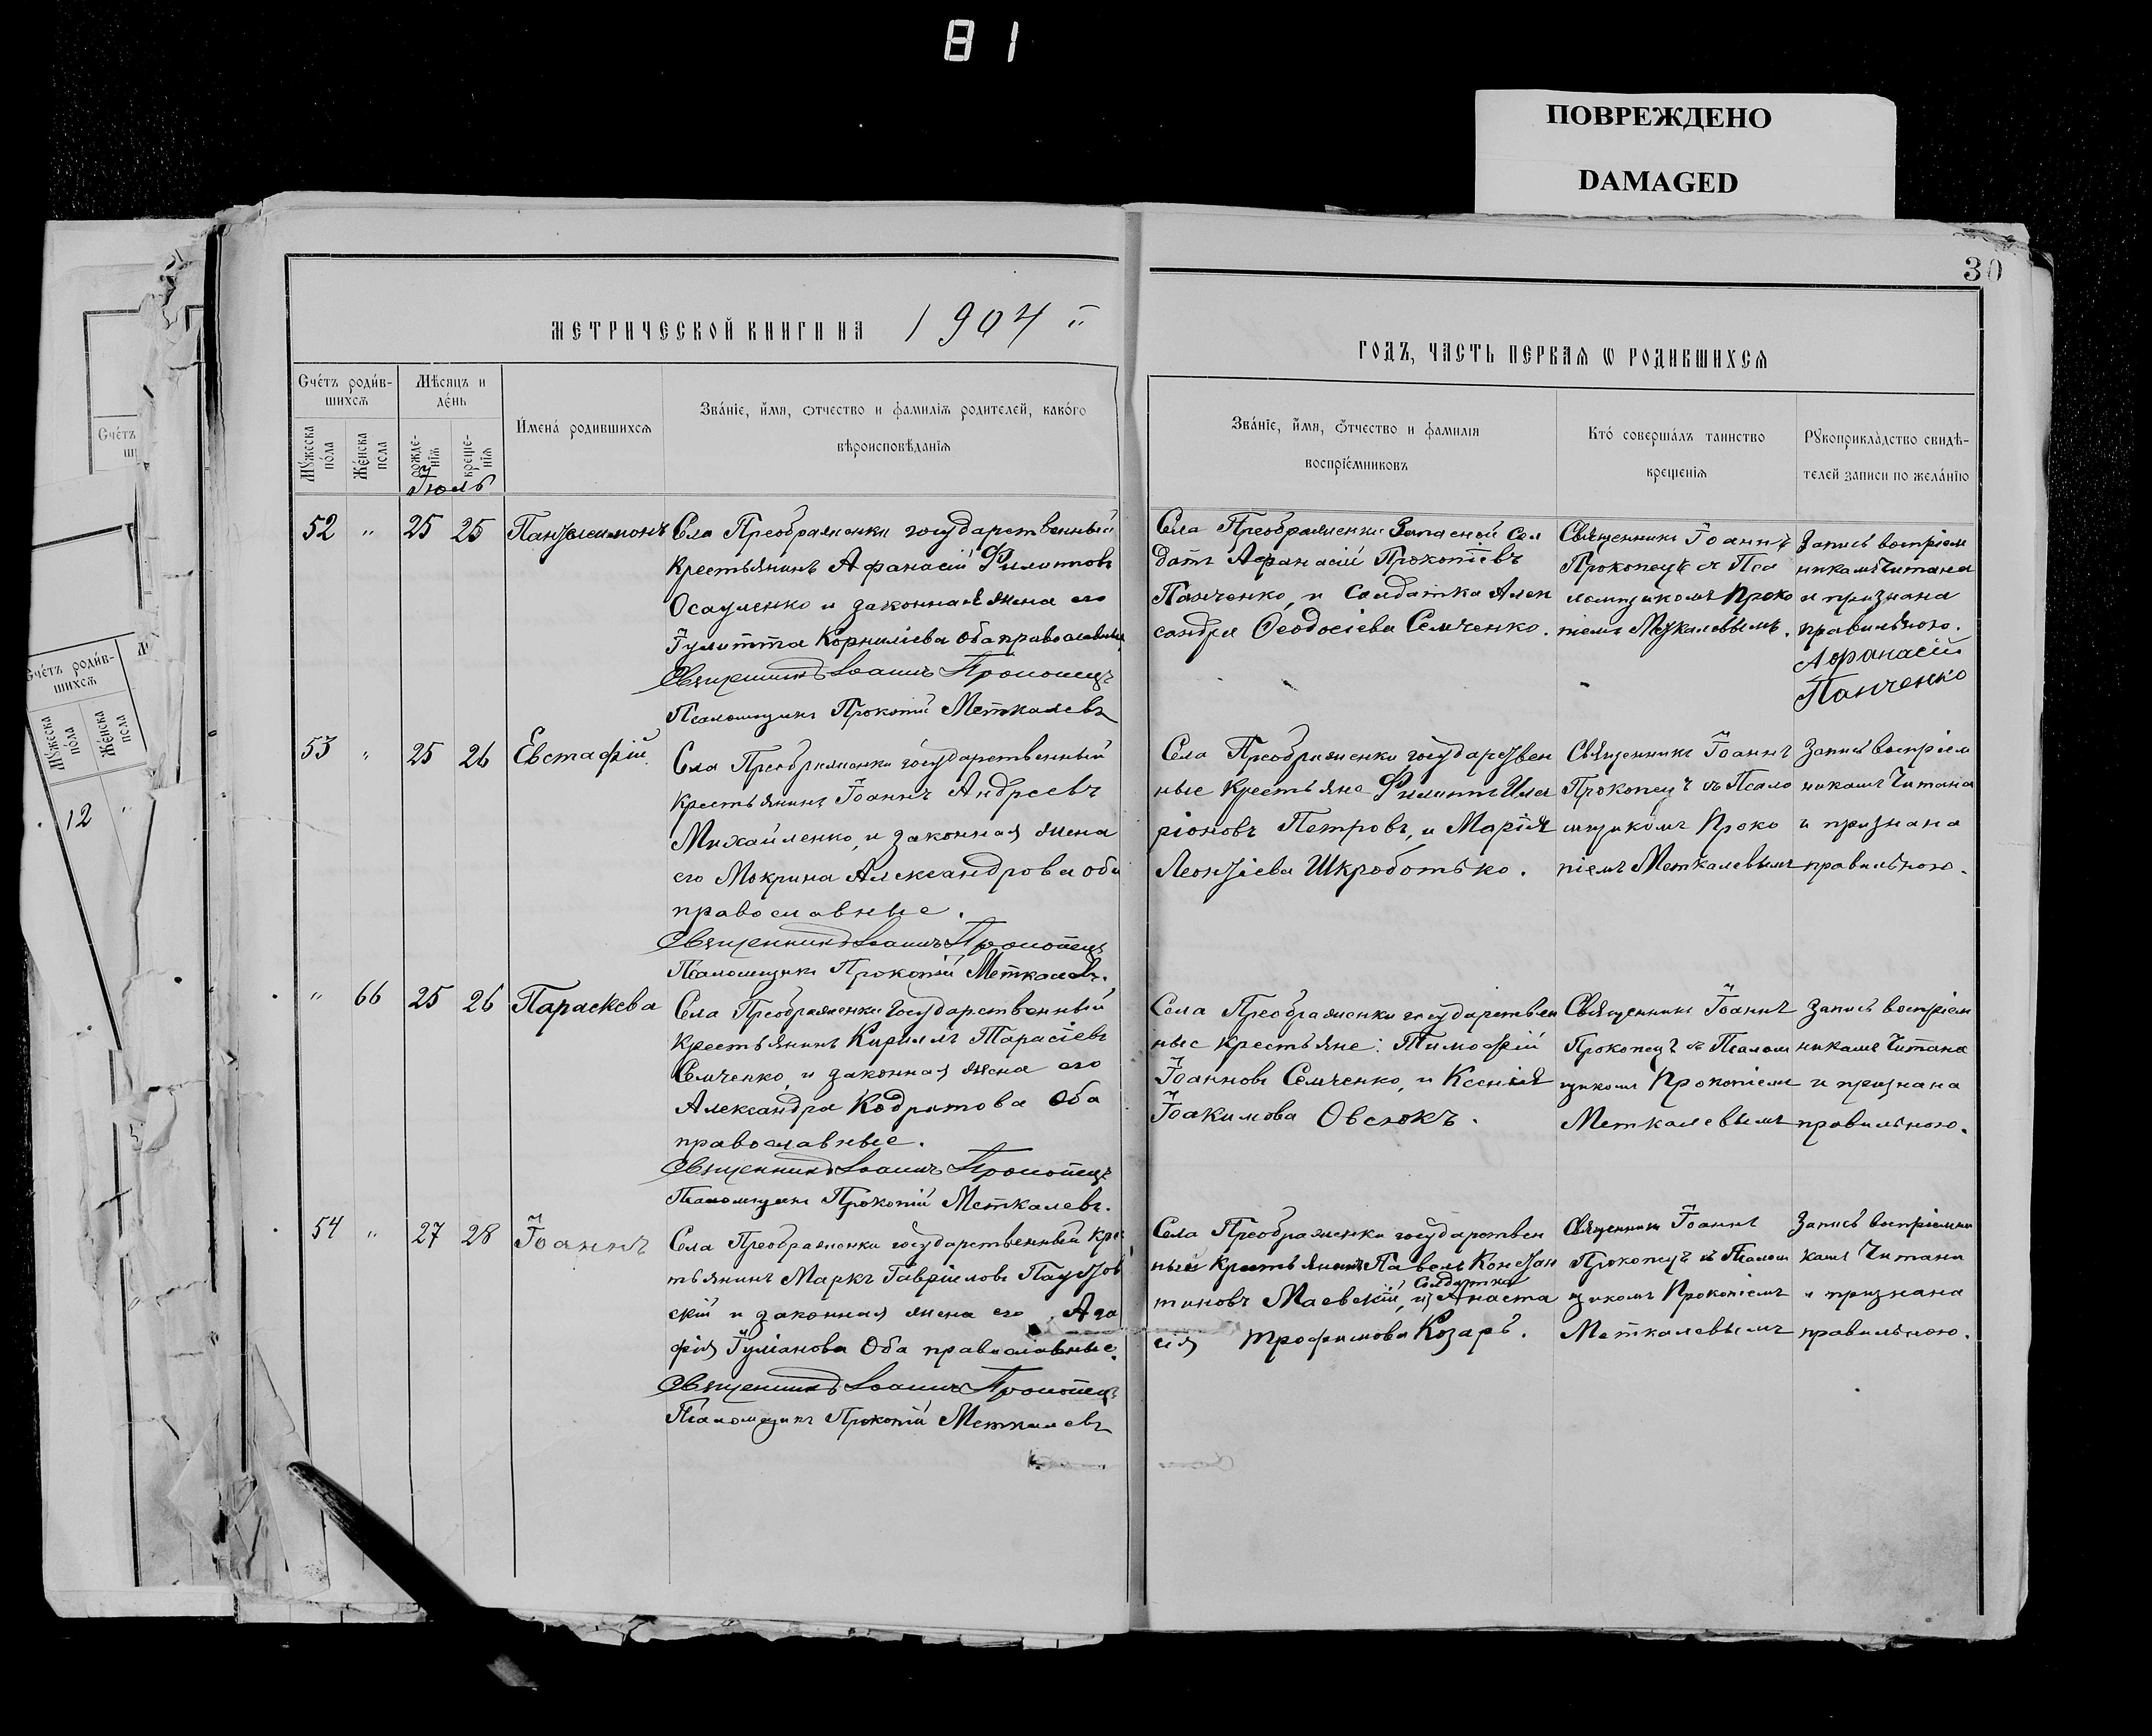 81
ПОВРЕЖДЕНО
DAMAGED
30
МЕТРИЧЕСКОЙ КНИГИ НА 1904
ГОДЪ, ЧАСТЬ ПЕРВАЯ Ѡ РОДИВШИХСЯ
Счётъ роди́в-
шихсѧ
Мѣ́сяцъ и
де́нь
И́мена́ родившихсѧ
Зва́нїе, и́мя, ѻтчество и фамилїѧ родителей, како́го
вѣроисповѣданїѧ
Мꙋ́жеска
по́ла
Же́нска
пола
рожде-
нїѧ
креще-
нїѧ
Іюль
Зва́нїе, и́мя, ѻ́тчество и фамилїя
воспрїе́мниковъ
Кто́ соверша́лъ таинство
крещенїя
Рꙋкоприкла́дство свидѣ-
телей записи по жела́нїю
Счётъ
Счётъ роди́в-
шихсѧ
Мꙋ́жеска
по́ла
Же́нска
пола
12 "
52 " 25 25 Пантелеимонъ
Села Преображенки государственный
крестьянинъ Афанасій Филиповъ
Осауленко и законная жена его
Іулитта Корниліева оба православные
Священникъ Іоаннъ Прокопецъ
Псаломщикъ Прокопій Меткалевъ
Села Преображенки Запасной Сол
датъ Афанасій Прокопіевъ
Панченко, и Солдатка Алек
сандра Ѳеодосіева Семченко.
Священникъ Іоаннъ
Прокопецъ съ Пса
ломщикомъ Проко
піемъ Меткалевымъ.
Запись воспріем
никамъ Читана
и признана
правильною.
Афанасій
Панченко
53 " 25 26 Евстафій
Села Преображенки государственный
крестьянинъ Іоаннъ Андреевъ
Михайленко, и законная жена
его Мокрина Александрова оба
православные.
Священникъ Іоаннъ Прокопецъ
Псаломщикъ Прокопій Меткалевъ.
Села Преображенки государствен
ные Крестьяне Филиппъ Ила
ріоновъ Петровъ, и Марія
Леонтіева Шкроботько.
Священникъ Іоаннъ
Прокопецъ съ Псало
мщикомъ Проко
піемъ Меткалевымъ
Запись воспріем
никамъ Читана
и признана
правильною.
" 66 25 26 Параскева
Села Преображенки государственный
крестьянинъ Кириллъ Тарасіевъ
Семченко, и законная жена его
Александра Кодратова Оба
православные.
Священникъ Іоаннъ Прокопецъ
Псаломщикъ Прокопій Меткалевъ.
Села Преображенки государствен
ные крестьяне: Тимофій
Іоанновъ Семченко, и Ксенія
Іоакимова Овсюкъ.
Священникъ Іоаннъ
Прокопецъ съ Псалом
щикомъ Прокопіемъ
Меткалевымъ
Запись воспріем
никамъ Читана
и признана
правильною.
54 " 27 28 Іоаннъ
Села Преображенки государственный крес
тьянинъ Маркъ Гавріиловъ Паустов
скій и законная жена его Ага
фія Іуліанова Оба православные.
Священникъ Іоаннъ Прокопецъ
Псаломщикъ Прокопій Меткалевъ
Села Преображенки государствен
ный крестьянинъ Павелъ Констан
тиновъ Маевскій, и Солдатка Анаста
сія Трофимова Козарь.
Священникъ Іоаннъ
Прокопецъ съ Псалом
щикомъ Прокопіемъ
Меткалевымъ
Запись воспріемни
камъ Читана
и признана
правильною.